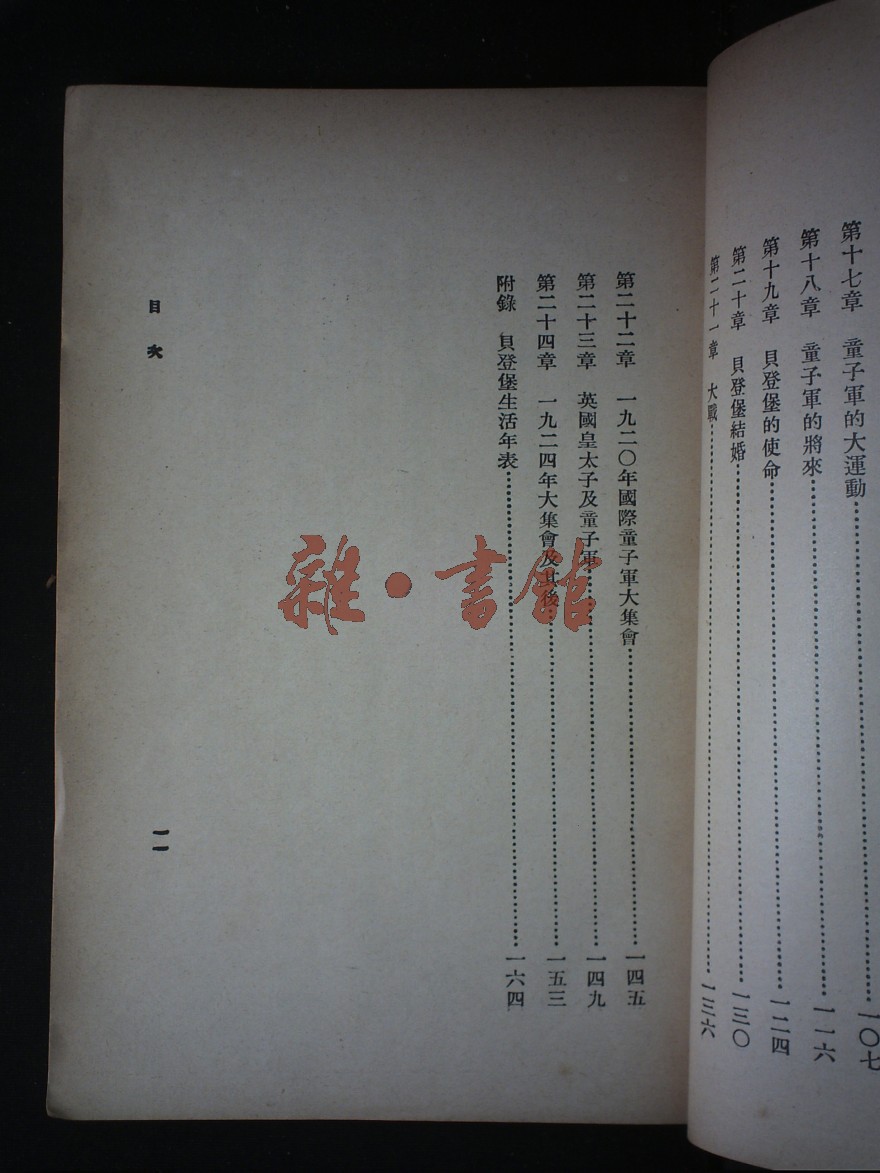 第十七章 童子軍的大運動…………一〇七
第十八章 童子軍的將來…………一一六
第十九章 貝登堡的使命…………一二四
第二十章 貝登堡結婚…………一三〇
第二十一章 大戰…………一三六
第二十二章 一九二〇年國際童子軍大集會…………一四五
第二十三章 英國皇太子及童子軍…………一四九
第二十四章 一九二四年大集會及其後…………一五三
附錄 貝登堡生活年表…………一六四
目次
二
雜·書館